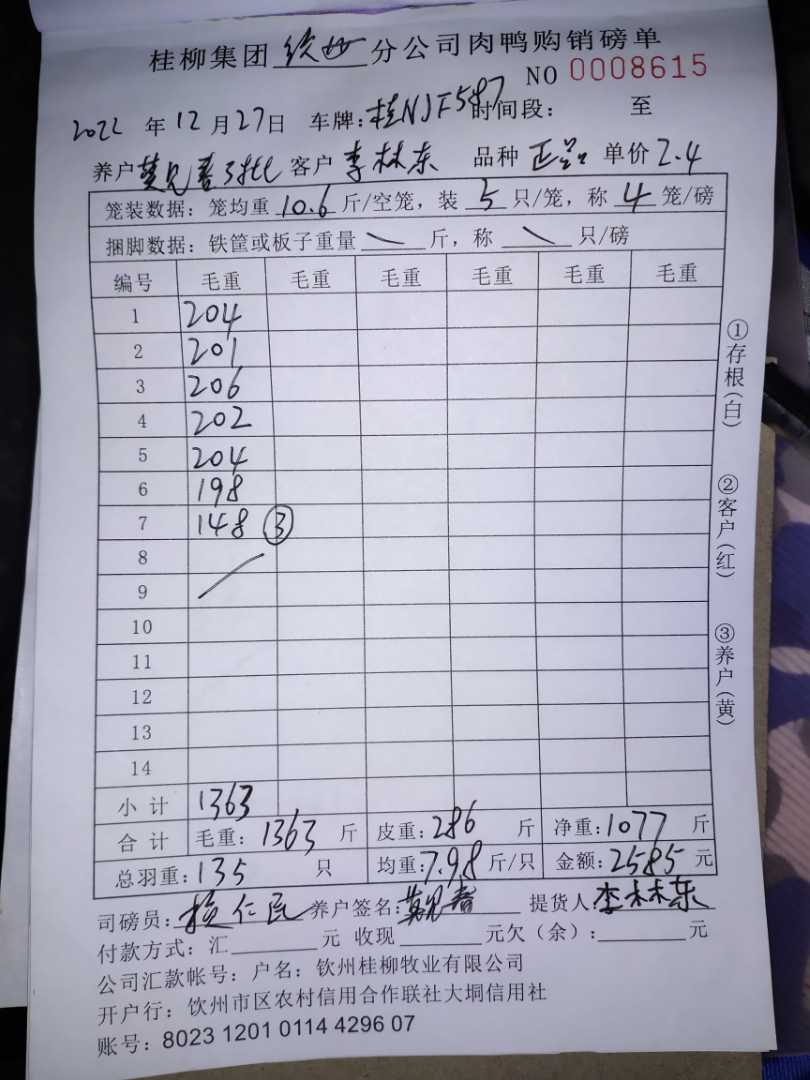 桂柳集团 钦州 分公司肉鸭购销磅单
NO 0008615
2022 年 12 月 27 日 车牌: 桂NJF587 时间段: 至
养户 3批 客户 李林东 品种 正品 单价 2.4
笼装数据: 笼均重 10.6 斤/空笼, 装 5 只/笼, 称 4 笼/磅
捆脚数据: 铁筐或板子重量 \ 斤, 称 \ 只/磅
编号 毛重 毛重 毛重 毛重 毛重 毛重
1 204
2 201
3 206
4 202
5 204
6 198
7 148 ③
8
9
10
11
12
13
14
小计 1363
合计 毛重: 1363 斤 皮重: 286 斤 净重: 1077 斤
总羽重: 135 只 均重: 7.98 斤/只 金额: 2585 元
司磅员: 仁民 养户签名: 提货人 李林东
付款方式: 汇 元 收现 元欠(余): 元
公司汇款帐号: 户名: 钦州桂柳牧业有限公司
开户行: 钦州市区农村信用合作联社大垌信用社
账号: 8023 1201 0114 4296 07
①存根(白)
②客户(红)
③养户(黄)